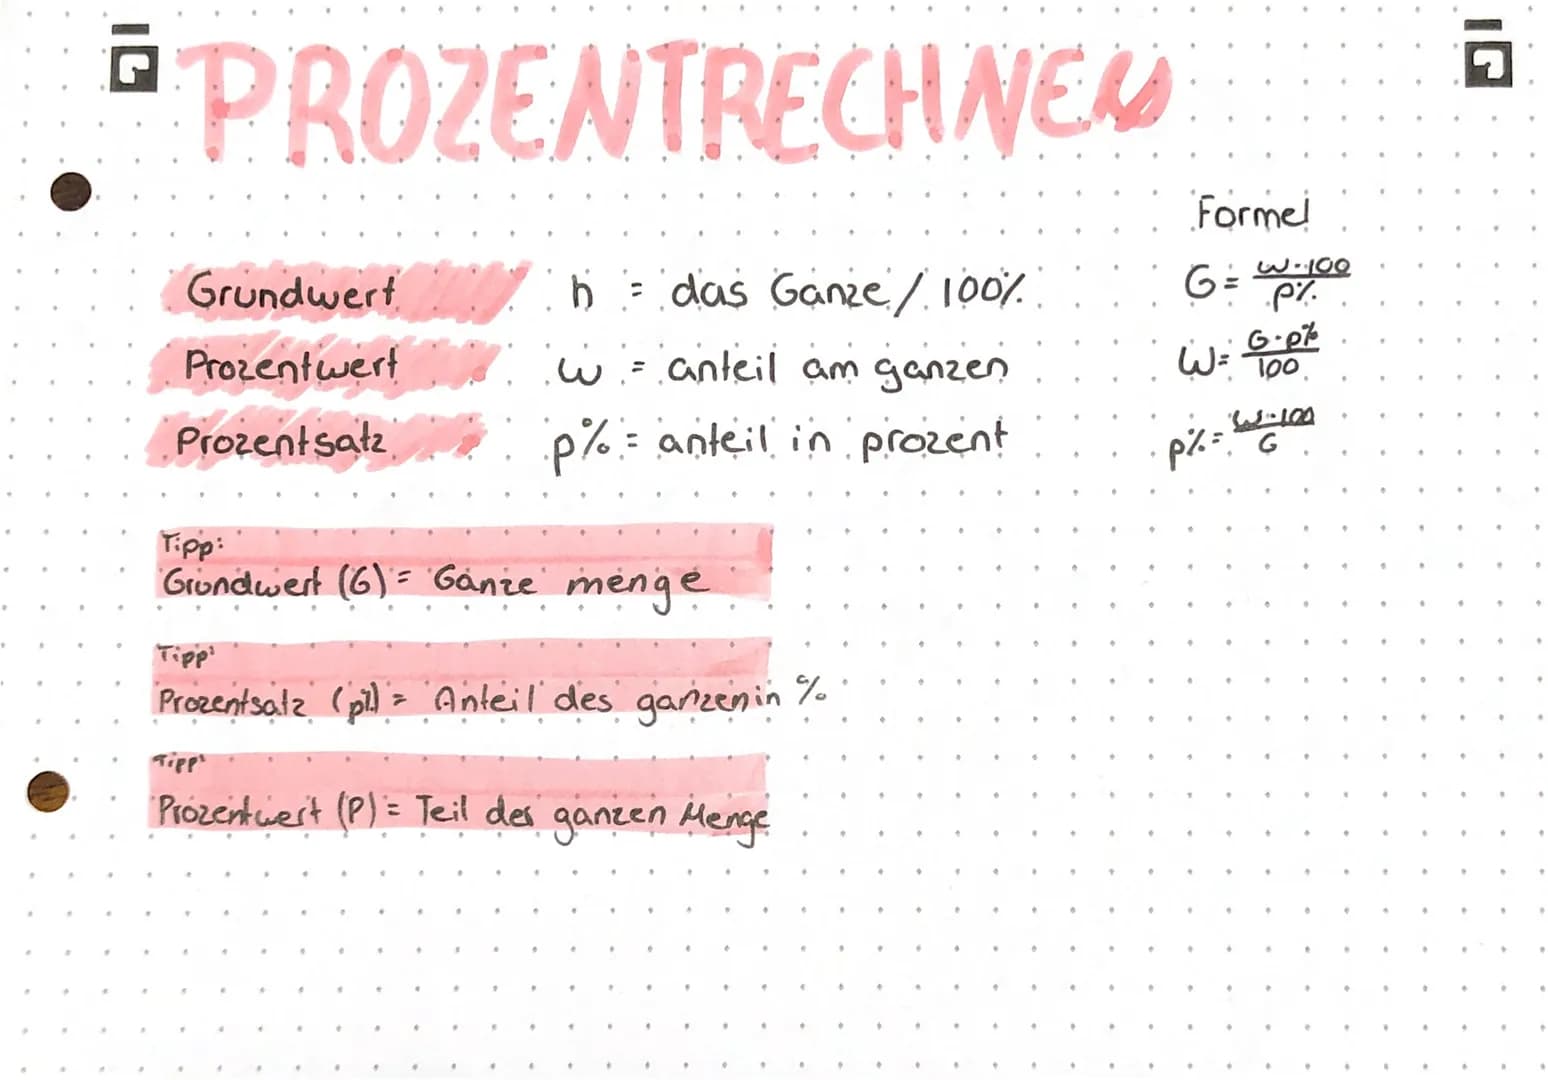 PROZENTRECHNEN
Formel
Grundwert h = das Ganze / 100% G = w·100 / p%
Prozentwert w = anteil am ganzen W = G·p% / 100
Prozentsatz p% = anteil in prozent p% = W·100 / G
Tipp:
Grundwert (G) = Ganze menge
Tipp:
Prozentsatz (p%) = Anteil des ganzen in %
Tipp:
Prozentwert (P) = Teil des ganzen Menge